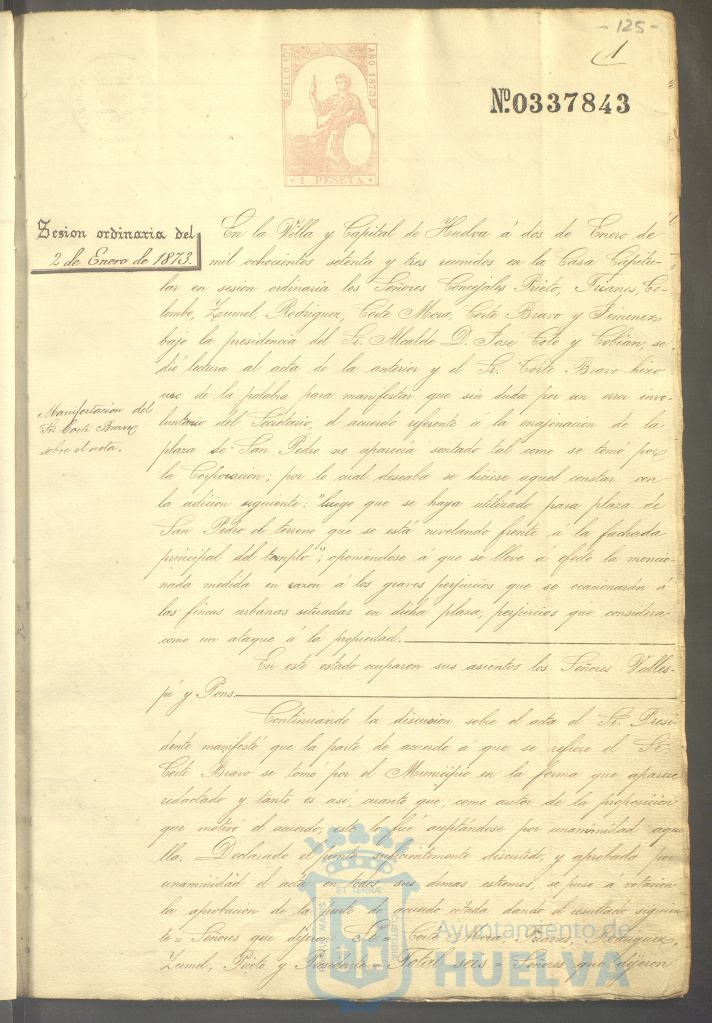 - 125 -
1
SELLO 10º
AÑO 1873
1 PESETA
Nº 0337843
Sesion ordinaria del
2 de Enero de 1873.
En la Villa y Capital de Huelva á dos de Enero de
mil ochocientos setenta y tres reunidos en la Casa Capitu-
lar en sesión ordinaria los Señores Concejales Prieto, Trianes, Co-
lombo, Zumel, Rodriguez, Corte Mora, Corte Bravo y Jimenez
bajo la presidencia del Sr. Alcalde D. José Coto y Cobian, se
dió lectura al acta de la anterior y el Sr. Corte Bravo hizo
uso de la palabra para manifestar que sin duda por un error invo-
luntario del Secretario, el acuerdo referente á la enajenacion de la
plaza de San Pedro no aparecia sentado tal como se tomó por
la Corporacion; por lo cual deseaba se hiciese aquel constar con
la adicion siguiente: "luego que se haya utilizado para plaza de
San Pedro el terreno que se está nivelando frente á la fachada
principal del templo"; oponiendose á que se lleve á efecto la mencio-
nada medida en razon á los graves perjuicios que se ocacionarán á
las fincas urbanas situadas en dicha plaza, perjuicios que considera
como un ataque á la propiedad.
Manifestacion del
Sr. Corte Bravo
sobre el acta.
En este estado ocuparon sus asientos los Señores Valles-
pi y Pons.
Continuando la discusion sobre el acta el Sr. Presi
dente manifestó que la parte de acuerdo á que se refiere el Sr.
Corte Bravo se tomó por el Municipio en la forma que aparece
redactado y tanto es así, cuanto que, como autor de la proposicion
que motivó el acuerdo, este lo fué aceptándose por unanimidad aque
lla. Declarado el punto suficientemente discutido, y aprobada por
unanimidad el acta en todos sus demas estremos, se puso á votacion
la aprobacion de la parte de acuerdo citada dando el resultado siguien
te = Señores que dijeron Sí = Corte Mora, Rodriguez,
Zumel, Prieto y Presidente = Total seis = Señores que dijeron
Ayuntamiento de
HUELVA